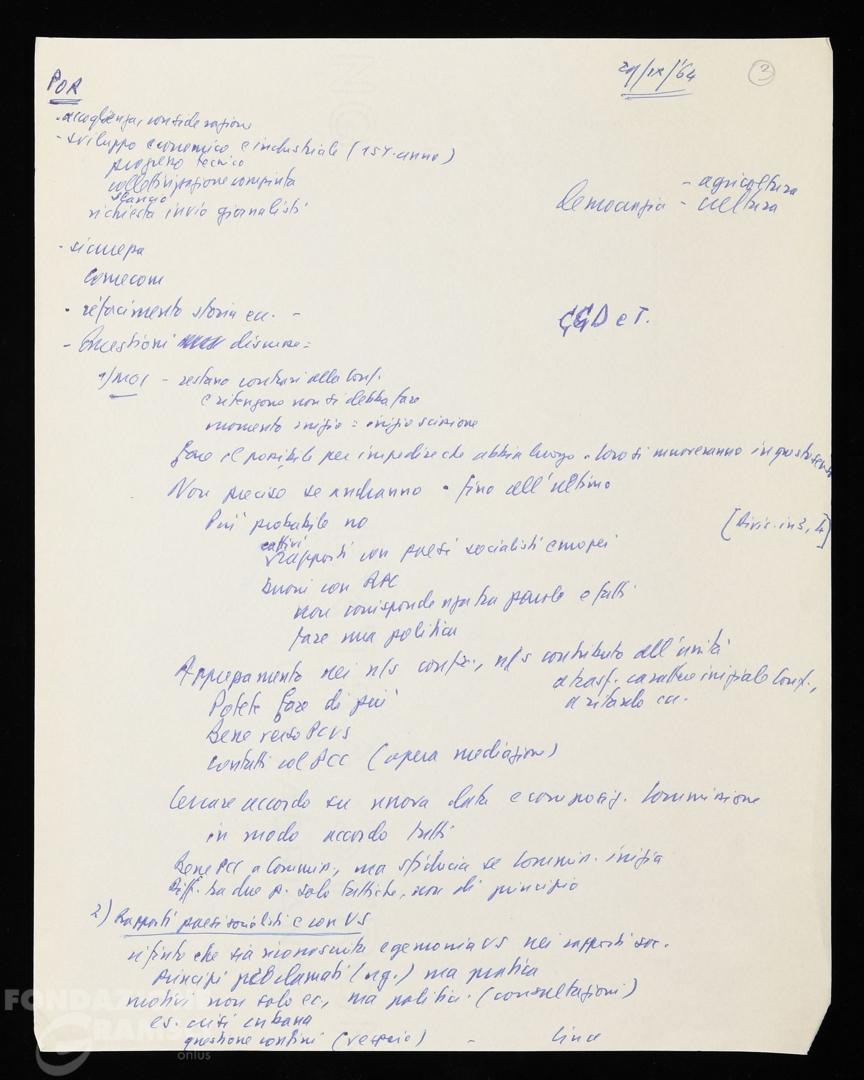 POR
29/IX/'64
3
- accoglienza, considerazione
- sviluppo economico e industriale (15%-anno)
progresso tecnico
collettivizzazione compiuta
slancio
richiesta invio giornalisti
Democrazia - agricoltura
- cultura
- sicurezza
Comecon
- rifacimento storia ecc. -
e T.
- Questioni discusse:
1) MOI - restano contrari alla Conf.
e ritengono non si debba fare
momento inizio = inizio scissione
Fare il possibile per impedire che abbia luogo - loro si muoveranno in questo senso
Non preciso se andranno - fino all'ultimo
Più probabile no
cattivi
rapporti con paesi socialisti europei
buoni con
non corrispondenza tra parole e fatti
fare una politica
Apprezzamento nei n/s confr., n/s contributo all'unità
a trasf. carattere iniziale Conf.,
a ritardo ecc.
Potete fare di più
Bene verso PCUS
Contatti col PCC (opera mediazione)
Cercare accordo su nuova data e composiz. Commissione
in modo accordo tutti
Bene PCI a Commiss., ma sfiducia se Commiss. inizia
Diff. tra due p. solo tattiche, non di principio
2) Rapporti paesi socialisti e con US
rifiuto che sia riconosciuta egemonia US nei rapporti soc.
Principi proclamati (ug.) ma pratica
motivi non solo ec., ma politici (consultazioni)
es. crisi cubana
questione confini -
FONDAZIONE
GRAMSCI
onlus